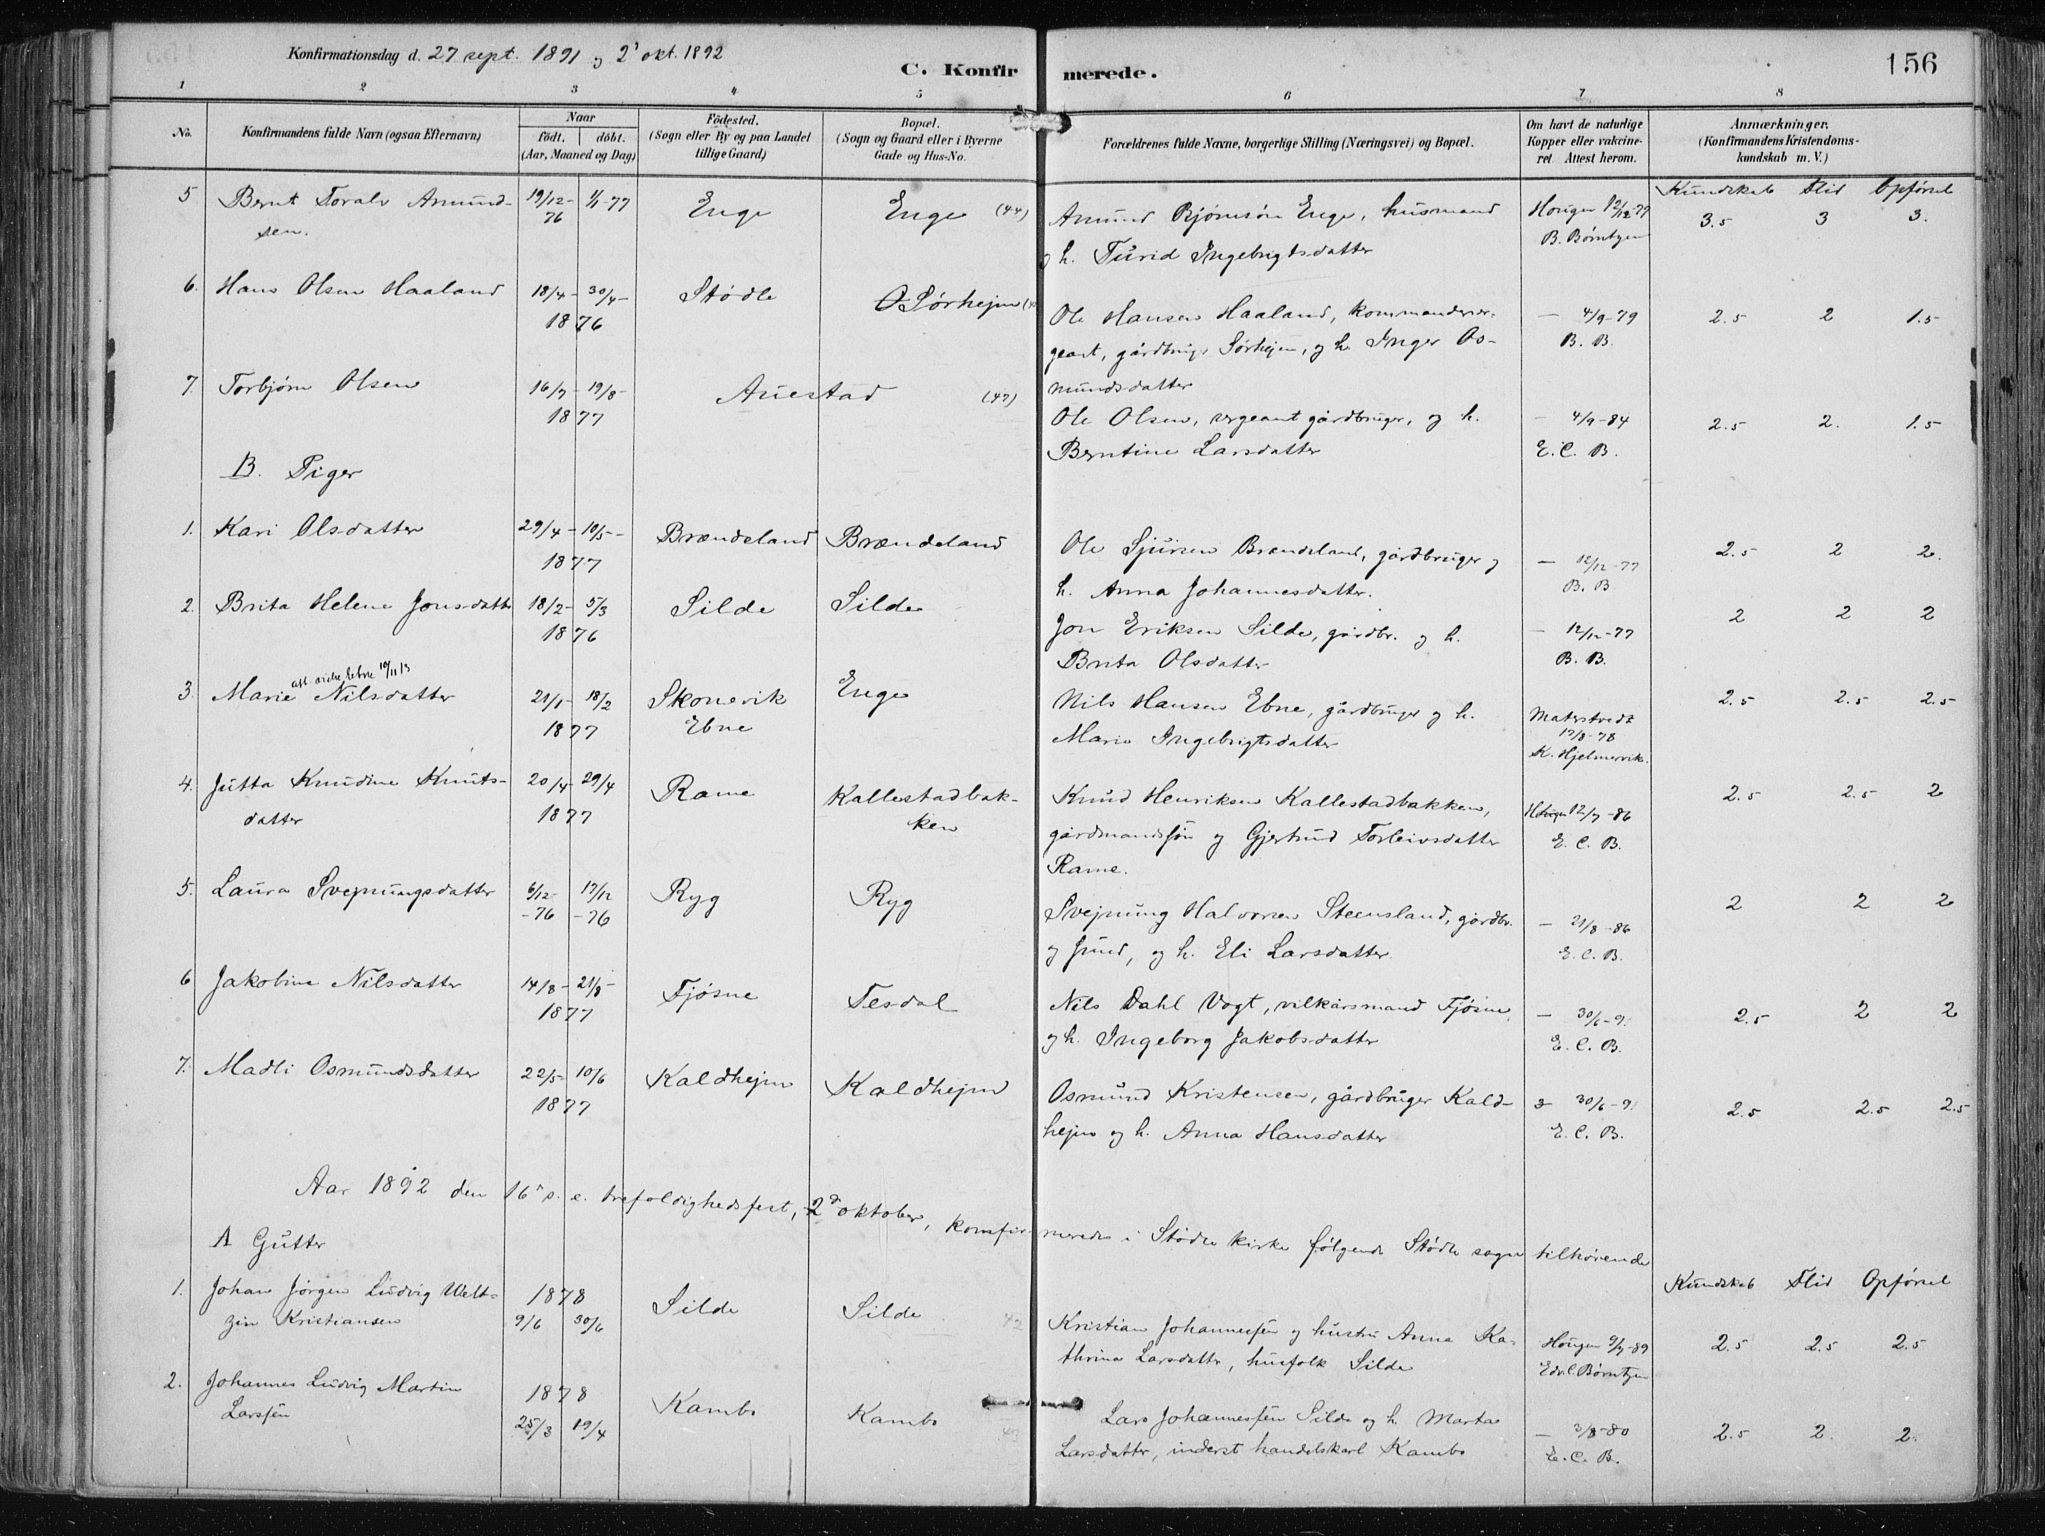 Konfirmationsdag d. 27 sept. 1891 og 2' okt. 1892
C. Konfirmerede.
156
1 2 3 4 5 6 7 8
No.
Konfirmandens fulde Navn (ogsaa Efternavn)
Naar
födt. döbt.
(Aar, Maaned og Dag)
Födested.
(Sogn eller By og paa Landet
tillige Gaard)
Bopæl.
(Sogn og Gaard eller i Byerne
Gade og Hus-No.
Forældrenes fulde Navne, borgerlige Stilling (Næringsvei) og Bopæl.
Om havt de naturlige
Kopper eller vakcine-
ret. Attest herom.
Anmærkninger,
(Konfirmandens Kristendoms-
kundskab m. V.)
Kundskab Flid Opførsel
5 Bernt Toralv Amund- 19/12- 1/1-77 Enge Enge (44) Amund Bjørnsøn Enge, husmand Hougen 12/12-79 3.5 3 3.
sen. 76 og h. Turid Ingebrigtsdatter B. Børntzen
6. Hans Olsen Haaland 18/4- 30/4- Stødle Sørhejm Ole Hansen Haaland, kommanderser- — 4/9-79 2.5 2 1.5
1876 geant, gårdbruger Sørhejm, og h. Inger Os- B. B.
7. Torbjørn Olsen 16/7- 19/8- Auestad (47) mundsdatter
1877 Ole Olsen, sergeant gårdbruger, og h. — 4/9-84 2.5 2. 1.5
Berntine Larsdatter E. C. B.
B. Piger
1. Kari Olsdatter 29/4- 10/5- Brændeland Brændeland Ole Sjursen Brændeland, gårdbruger og — 12/12-77 2.5 2 2.
1877 h. Anna Johannesdatter. B. B.
2. Brita Helene Jonsdatter 18/2- 5/3 Silde Silde Jon Eriksen Silde, gårdbr. og h. — 12/12-77 2 2 2
1876 Brita Olsdatter B. B.
10/11 13
3. Marie Nilsdatter 21/1- 18/2 Skonevik Enge Nils Hansen Ebne, gårdbruger og h. Materstvedt 2.5 2.5 2.5
1877 Ebne Marie Ingebrigtsdatter 17/8-78
K. Hjelmervik.
4. Jutta Knudine Knuts- 20/4- 29/4 Rame Kallestadbak- Knud Henriksen Kallestadbakken, Hougen 12/7-86 2.5 2.5 2
datter 1877 ken gårdmandssøn og Gjertrud Torleivsdatter E. C. B.
Rame.
5. Laura Svejnungsdatter 6/12- 17/12 Ryg Ryg Svejnung Halvorsen Steensland, gårdbr. — 21/8-86 2 2 2
-76 -76 og smed, og h. Eli Larsdatter E. C. B.
6 Jakobine Nilsdatter 14/8- 21/8- Fjøsne Tesdal Nils Dahl Vogt, vilkårsmand Fjøsne — 30/6-91 2.5 2 2
1877 og h. Ingeborg Jakobsdatter E. C. B.
7. Madli Osmundsdatter 22/5- 10/6 Kaldhejm Kaldhejm Osmund Kristensen, gårdbruger Kald- 30/6-91 2.5 2.5 2.5
1877 hejm og h. Anna Hansdatter E. C. B.
Aar 1892 den 16' s. e. trefoldighedsfest, 2d oktober, konfirmeredes i Stødle kirke følgende Stødle sogn tilhørende
A Gutter
Kundskab Flid Opførsel
1. Johan Jørgen Ludvig Welt- 1878 Silde Silde 42 Kristian Johannessen og hustru Anna Ka- Hougen 9/7-89 2.5 2.5 2.5
zin Kristiansen 9/6 30/6 thrina Larsdatter, husfolk Silde Edv. C. Børntzen
2. Johannes Ludvig Martin 1878 Kambo Kambo Lars Johannessen Silde og h. Marta — 3/8-80 2.5 2. 2.
Larssen 25/3 19/4 Larsdatter, inderst handelskarl Kambo E. C. B.